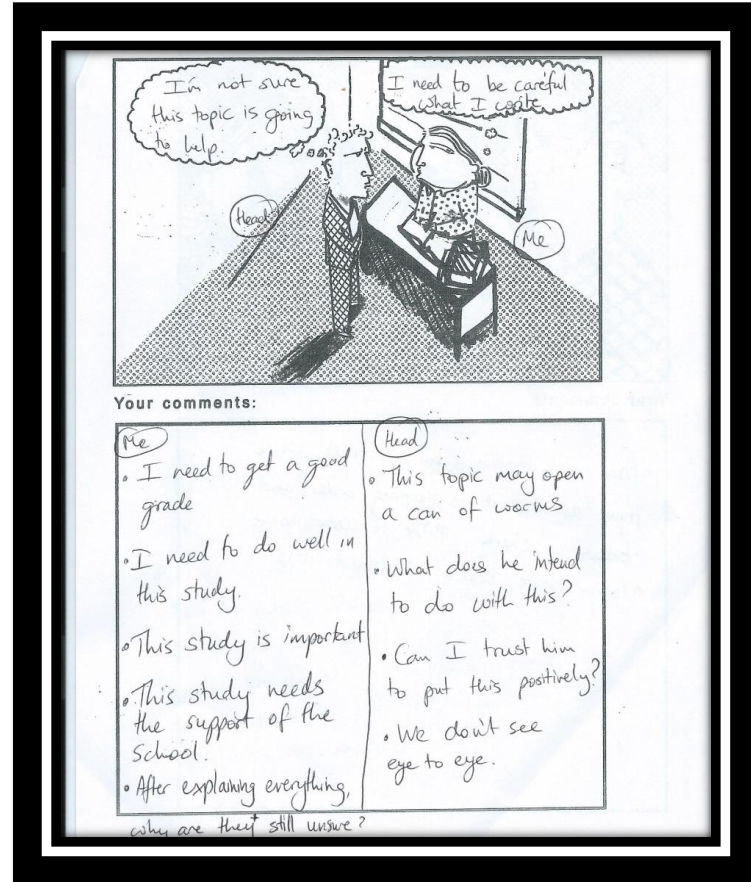 I'm not sure
this topic is going
to help.
I need to be careful
what I write
Head
Me
Your comments:
Me
• I need to get a good
grade
• I need to do well in
this study.
• This study is important
• This study needs
the support of the
School.
• After explaining everything,
why are they still unsure?
Head
• This topic may open
a can of worms
• What does he intend
to do with this?
• Can I trust him
to put this positively?
• We don't see
eye to eye.